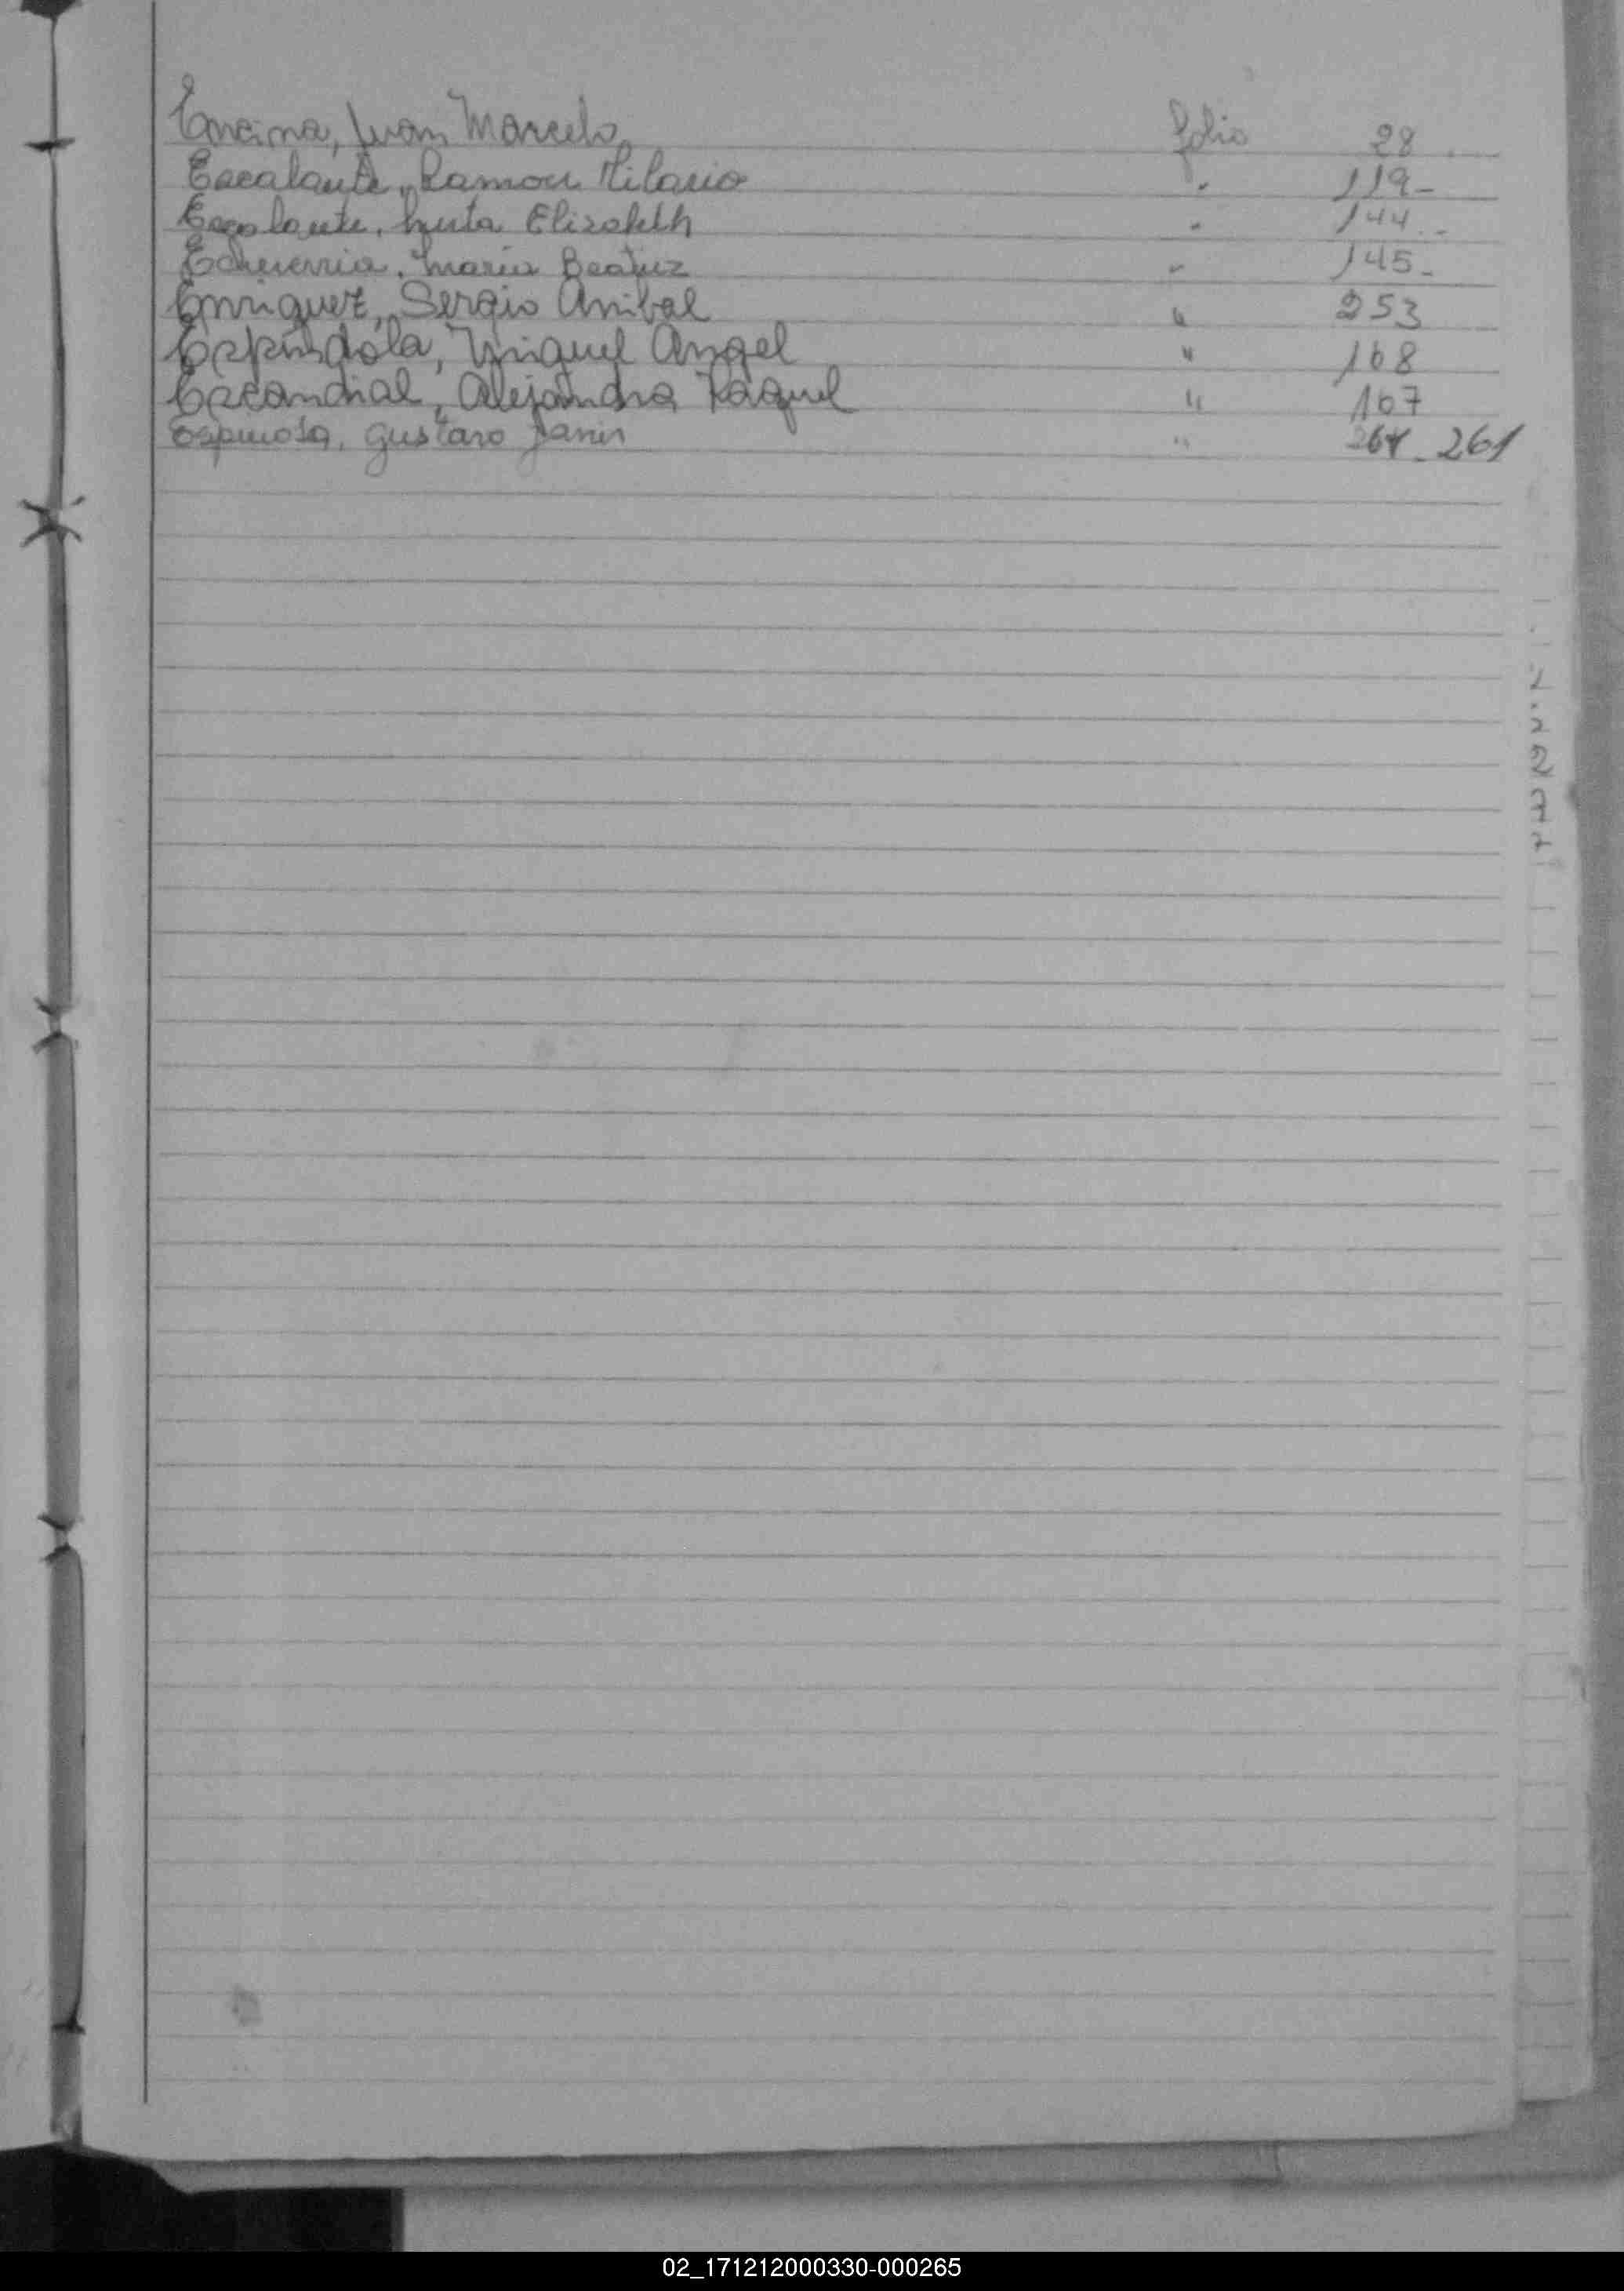 Encina, Juan Marcelo folio 28
Escalante, Ramon Hilario " 119-
Escalante, Elizabeth " 144..
Echeverria, Maria Beatriz " 145-
Enriquez, Sergio Anibal " 253
Espindola, Miguel Angel " 168
Escandrial, Alejandra Raquel " 167
Espinosa, Gustavo Javier " 261
02_171212000330-000265